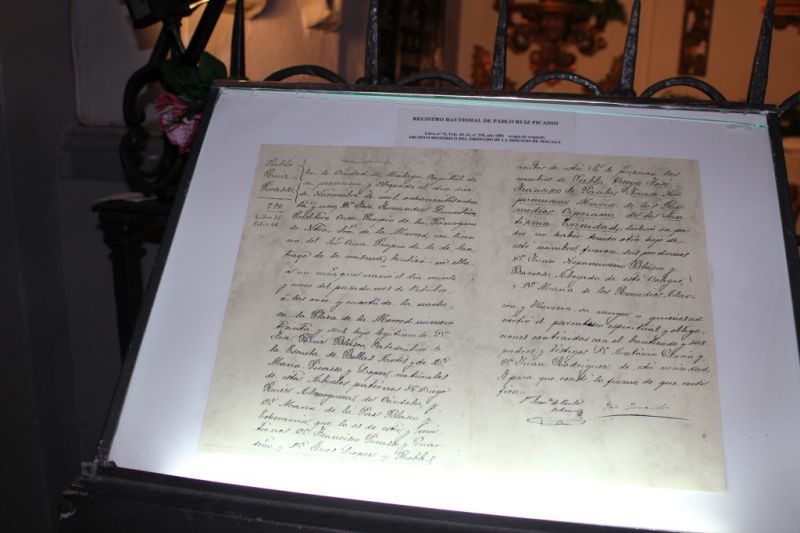 REGISTRO BAUTISMAL DE PABLO RUÍZ PICASSO
Libro nº 71, Fol. 40, 41, nº 298, año 1881 (copia de original)
ARCHIVO HISTÓRICO DEL OBISPADO DE LA DIÓCESIS DE MÁLAGA
Pablo
Ruiz
Picasso
298
Libro 71
Folio 40
En la Ciudad de Málaga Capital de
su provincia y Obispado el dia diez
de Noviembre de mil ochocientos ochen
ta y uno D. José Fernandez
Cura Propio de la Parroquia
de Ntra. Sra. de la Merced, con licen
cia del Sr. Cura Propio de la de San
tiago de la misma, bautizó en ella
á un niño que nació el dia veinte
y cinco del pasado mes de Octubre,
á las once y cuarto de la noche,
en la Plaza de la Merced numero
treinta y seis hijo legítimo de Dn.
José Ruiz Blasco, Catedratico de
la Escuela de Bellas Artes y de Dª
Maria Picasso y Lopez, naturales
de esta; Abuelos paternos Dn. Diego
Ruiz Almoguera, de Córdoba, y
Dª Maria de la Paz Blasco y
Echevarria, que lo es de esta, y ma
ternos Dn. Francisco Picasso y Guar
deño, y Dª Ines Lopez y Robles
de esta. Se le pusieron los
nombres de Pablo, Diego, José,
Francisco de Paula, Juan Ne
pomuceno, Maria de los Re
medios, Cipriano de la San
tisima Trinidad, declaró su pa
dre no haber tenido otro hijo de
este nombre; fueron sus padrinos
Dn. Juan Nepomuceno Blasco y
Barroso, Abogado de este
y Dª Maria de los Remedios Alar
con y Herrera su mujer a quienes ad
vertí el parentesco espiritual y obliga
ciones contraidas con el bautizado y sus
padres; y testigos Dn. Antonio
Dn. Juan Rodriguez, de esta vecindad.
Y para que conste lo firmo de que certi
fico.
José Fernandez